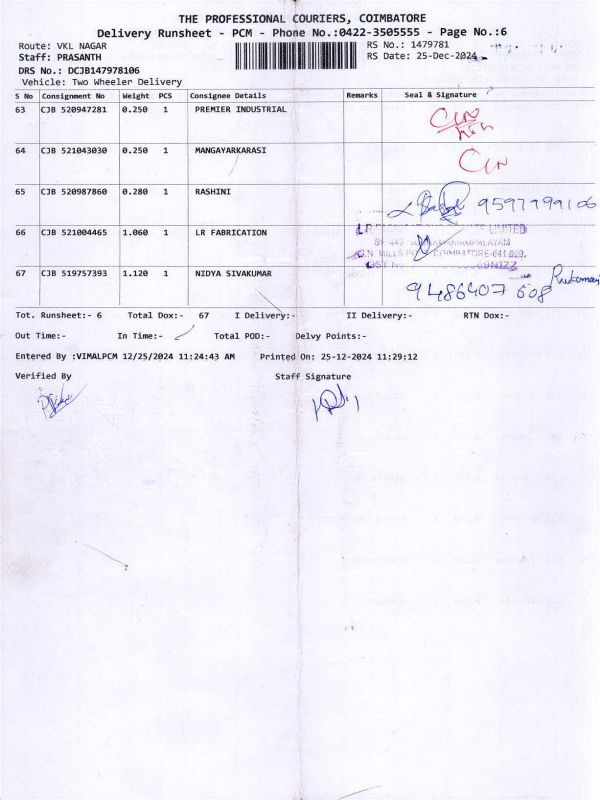 THE PROFESSIONAL COURIERS, COIMBATORE
Delivery Runsheet - PCM - Phone No.:0422-3505555 - Page No.:6
Route: VKL NAGAR RS No.: 1479781
Staff: PRASANTH RS Date: 25-Dec-2024
DRS No.: DCJB147978106
Vehicle: Two Wheeler Delivery
S No Consignment No Weight PCS Consignee Details Remarks Seal & Signature
63 CJB 520947281 0.250 1 PREMIER INDUSTRIAL
64 CJB 521043030 0.250 1 MANGAYARKARASI
65 CJB 520987860 0.280 1 RASHINI 9597799106
66 CJB 521004465 1.060 1 LR FABRICATION
LIMITED
COIMBATORE-641 029.
67 CJB 519757393 1.120 1 NIDYA SIVAKUMAR 9486407 608
Tot. Runsheet:- 6 Total Dox:- 67 I Delivery:- II Delivery:- RTN Dox:-
Out Time:- In Time:- Total POD:- Delvy Points:-
Entered By :VIMALPCM 12/25/2024 11:24:43 AM Printed On: 25-12-2024 11:29:12
Verified By Staff Signature